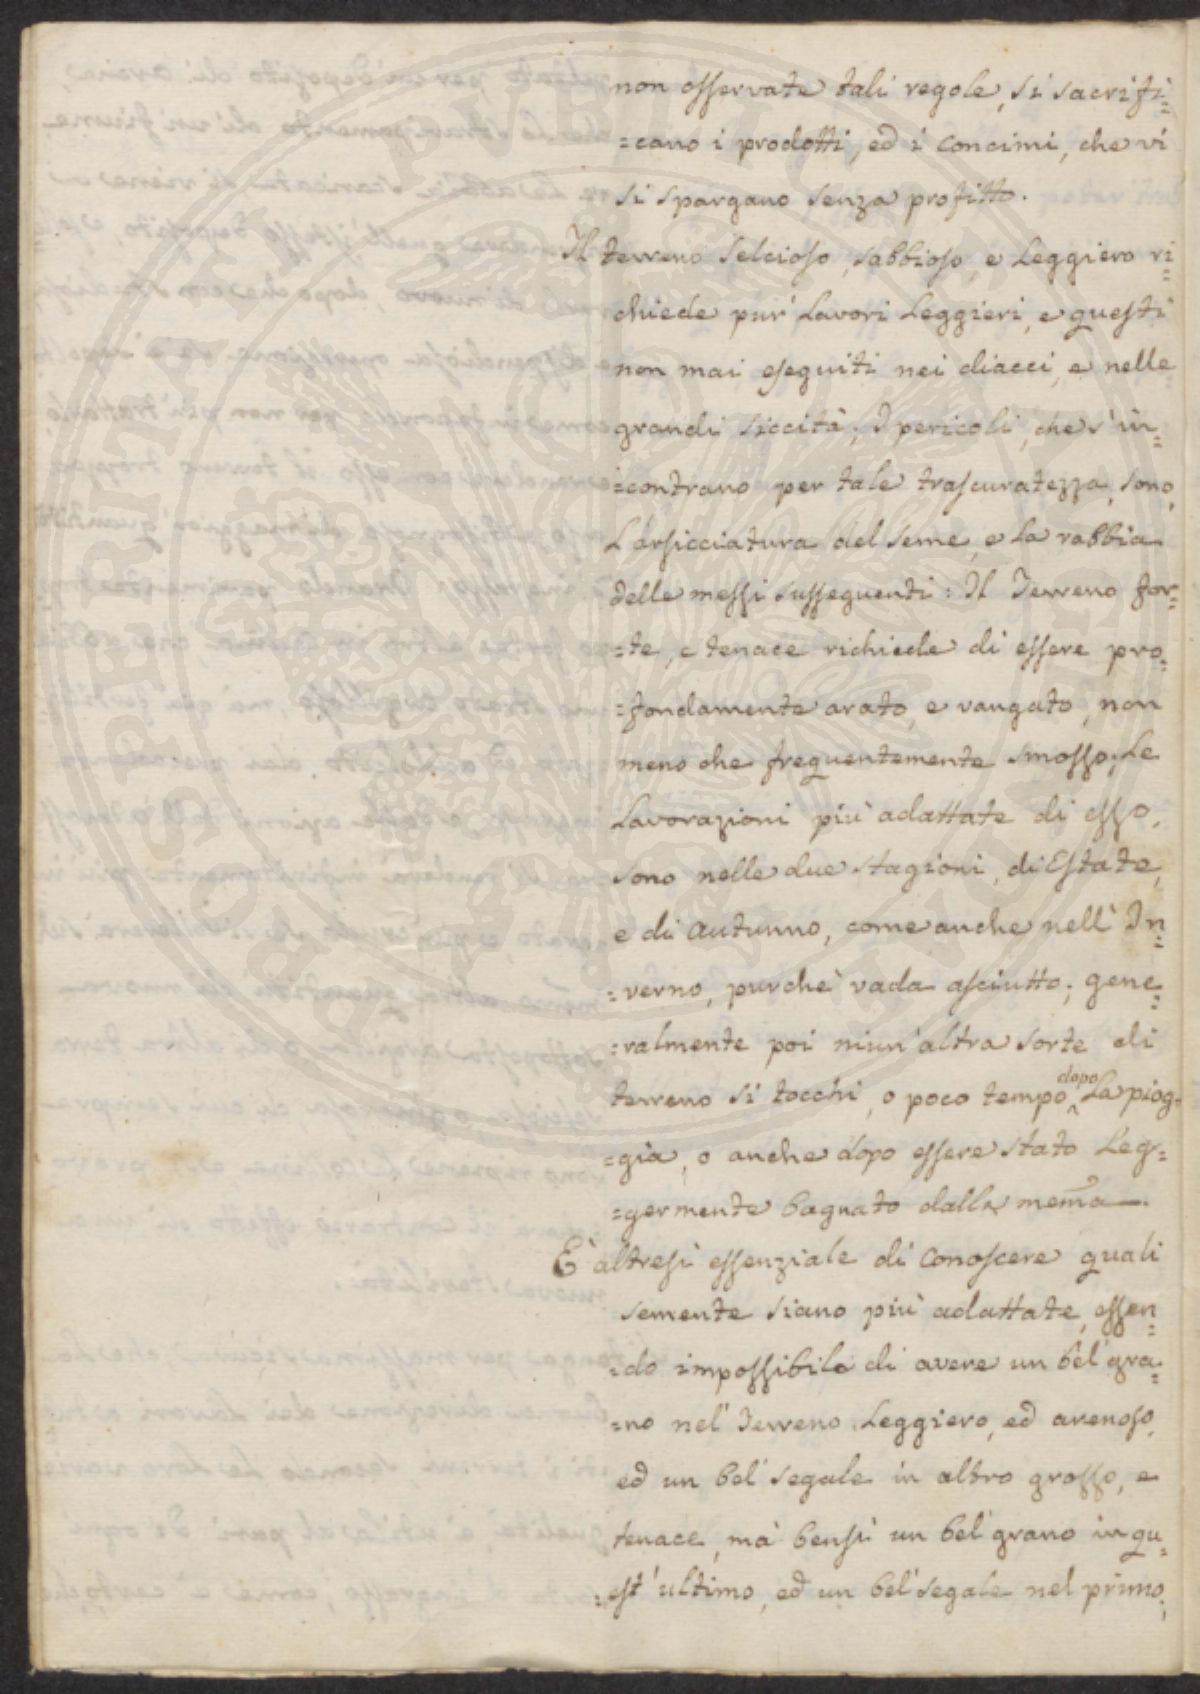 non osservate tali regole, si sacrifi=
=cano i prodotti, ed i concimi, che vi
si spargano senza profitto.
Il terreno selcioso, sabbioso, e Leggiero ri=
chiede pur' Lavori Leggieri, e questi
non mai eseguiti nei diacci, e nelle
grandi siccità; I pericoli, che s'in=
=contrano per tale trascuratezza, sono,
L'arsicciatura del seme, e La rabbia
delle messi susseguenti: Il Terreno for=
=te, e tenace richiede di essere pro=
=fondamente arato, e vangato, non
meno che frequentemente smosso; Le
Lavorazioni più adattate di esso,
sono nelle due stagioni, di Estate,
e di Autunno, come anche nell' In=
=verno, purchè vada asciutto; gene=
=ralmente poi niun'altra sorte di
terreno si tocchi, o poco tempo dopo La piog=
=gia, o anche dopo essere stato Leg=
=germente bagnato dalla mem̃a.
E' altresì essenziale di conoscere quali
semente siano più adattate, essen=
=do impossibile di avere un bel' gra=
=no nel' Terreno Leggiero, ed arenoso,
ed un bel' segale in altro grosso, e
tenace, mà bensì un bel' grano in qu=
=est'ultimo, ed un bel' segale nel primo;
PROSPERITATI PVBLICAE AVGENDAE